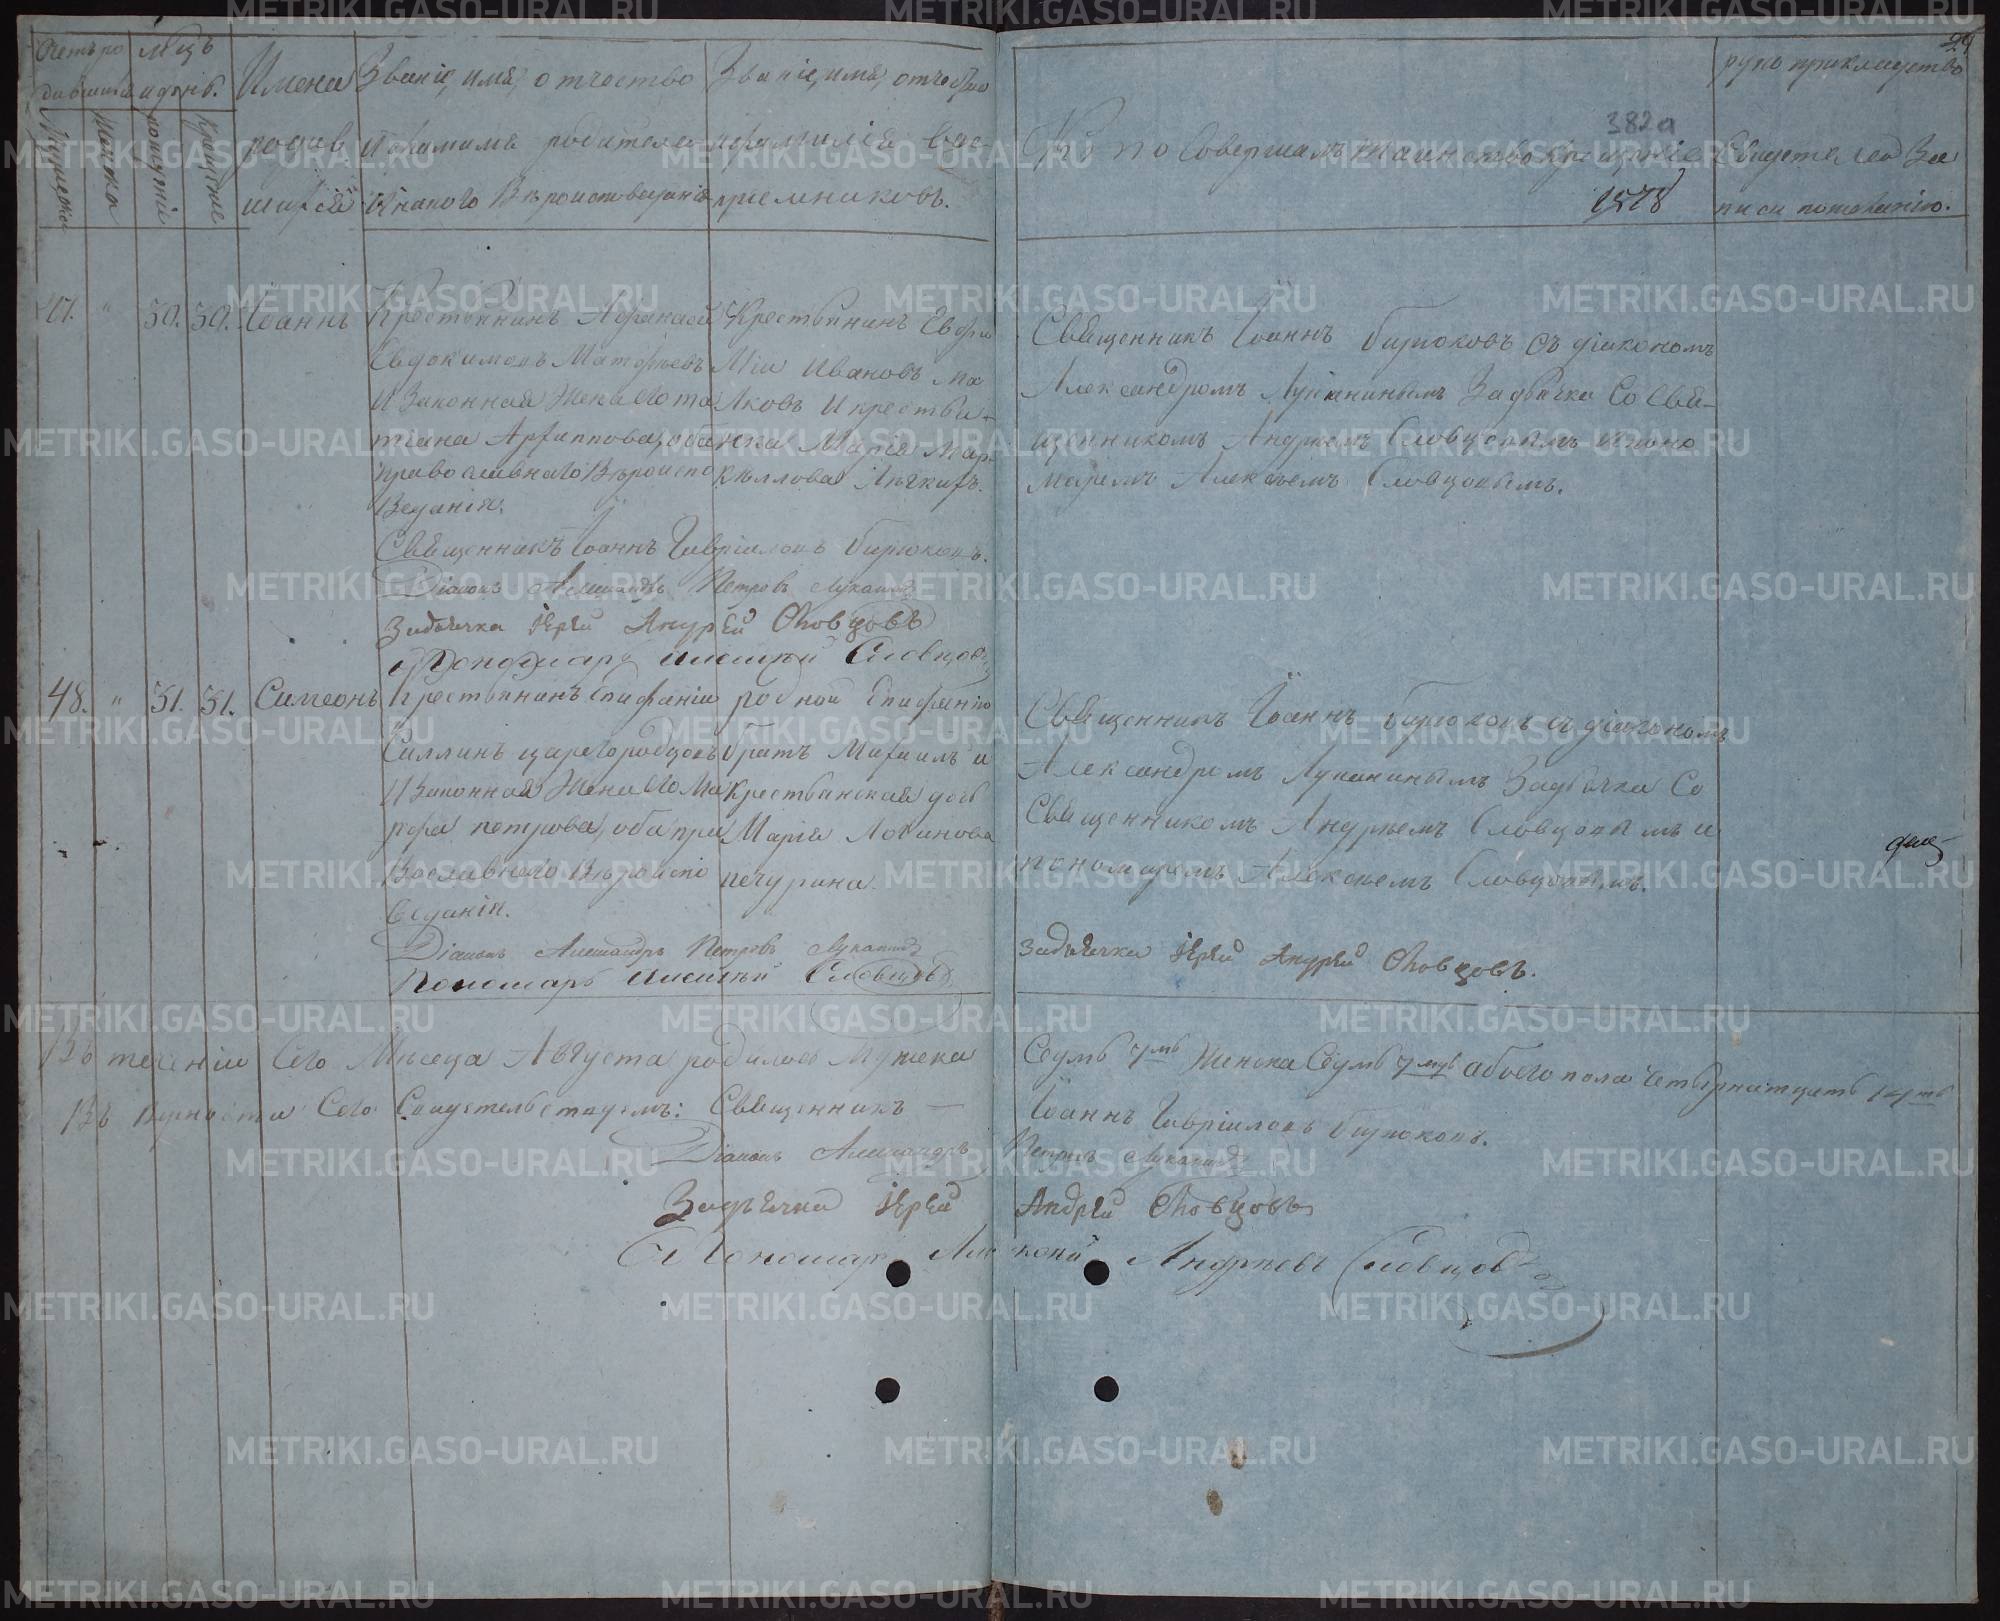 Счетъ ро
дившихся
Мужеска
Женска
М–цъ
и днѣ.
рожденія
крещенія
Имена
родив
шихся
Званіе, имя, отчество
и фамилія родителей
и какого вѣроисповеданія
Званіе, имя, отчество
и фамилія вос-
пріемниковъ.
Кто совершалъ таинство крещенія
382а
1578
24
рукоприкладство
свидетелей за
писи по желанію.
47. " 30. 30. Іоаннъ
Крестьянинъ Афанасей
Евдокимовъ Матфѣевъ
и законная жена его та
тіана Архиппова, оба
православнаго вѣроиспо
веданія.
Крестьянинъ Евфи
мій Ивановъ ма
лковъ и крестья-
нка Марія Мар
кѣллова Лягкихъ.
Священникъ Іоаннъ Бирюковъ съ діакономъ
Александромъ Луканинымъ за дьячка со свя-
щенникомъ Андреемъ Словцовымъ и поно
маремъ Алексѣемъ Словцовымъ.
Священникъ Іоаннъ Гавріиловъ Бирюковъ.
Діаконъ Александръ Петровъ Луканинъ
За дьячка Іерей Андрей Словцовъ
Пономарь Алексѣй Словцовъ
48. " 31. 31. Симеонъ
Крестьянинъ Епифаній
Силлинъ Царегородцовъ
и законная жена его Ма
рфа Петрова, оба пра
вославнаго вѣроиспо
веданія.
родной Епифанію
братъ Михаилъ и
крестьянская дочь
Марія Логинова
Печурина.
Священникъ Іоаннъ Бирюковъ съ діакономъ
Александромъ Луканинымъ за дьячка со
священникомъ Андреемъ Словцовымъ и
пономаремъ Алексѣемъ Словцовымъ.
Діаконъ Александръ Петровъ Луканинъ
Пономарь Алексѣй Словцовъ
За дьячка Іерей Андрей Словцовъ.
Въ теченіи сего месяца Августа родилось мужеска седмь 7мь женска седмь 7мь обоего пола четырнатцать 14ть
Въ верности сего свидетельствуемъ: Священникъ — Іоаннъ Гавріиловъ Бирюковъ.
Діаконъ Александръ Петровъ Луканинъ
За дьячка Іерей Андрей Словцовъ
Пономарь Алексѣй Андреевъ Словцовъ
METRIKI.GASO-URAL.RU